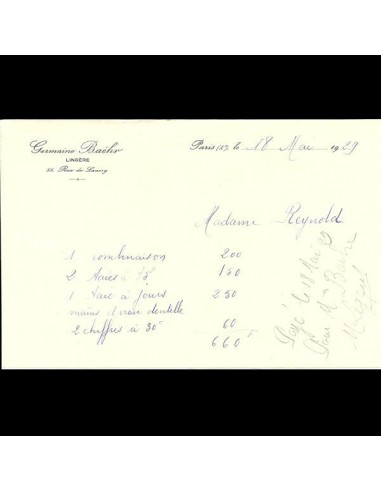 Germaine Bachr
LINGÈRE
55, Rue de Lancry
Paris (X), le 18 Mai 1929
Madame Reynold
1 combinaison 200
2 taies à 75 150
1 taie à jours 250
mains et vraie dentelle
2 chiffres à 30 60
660 F
Payé le 18 Mai 29
Pour Mme Bachr